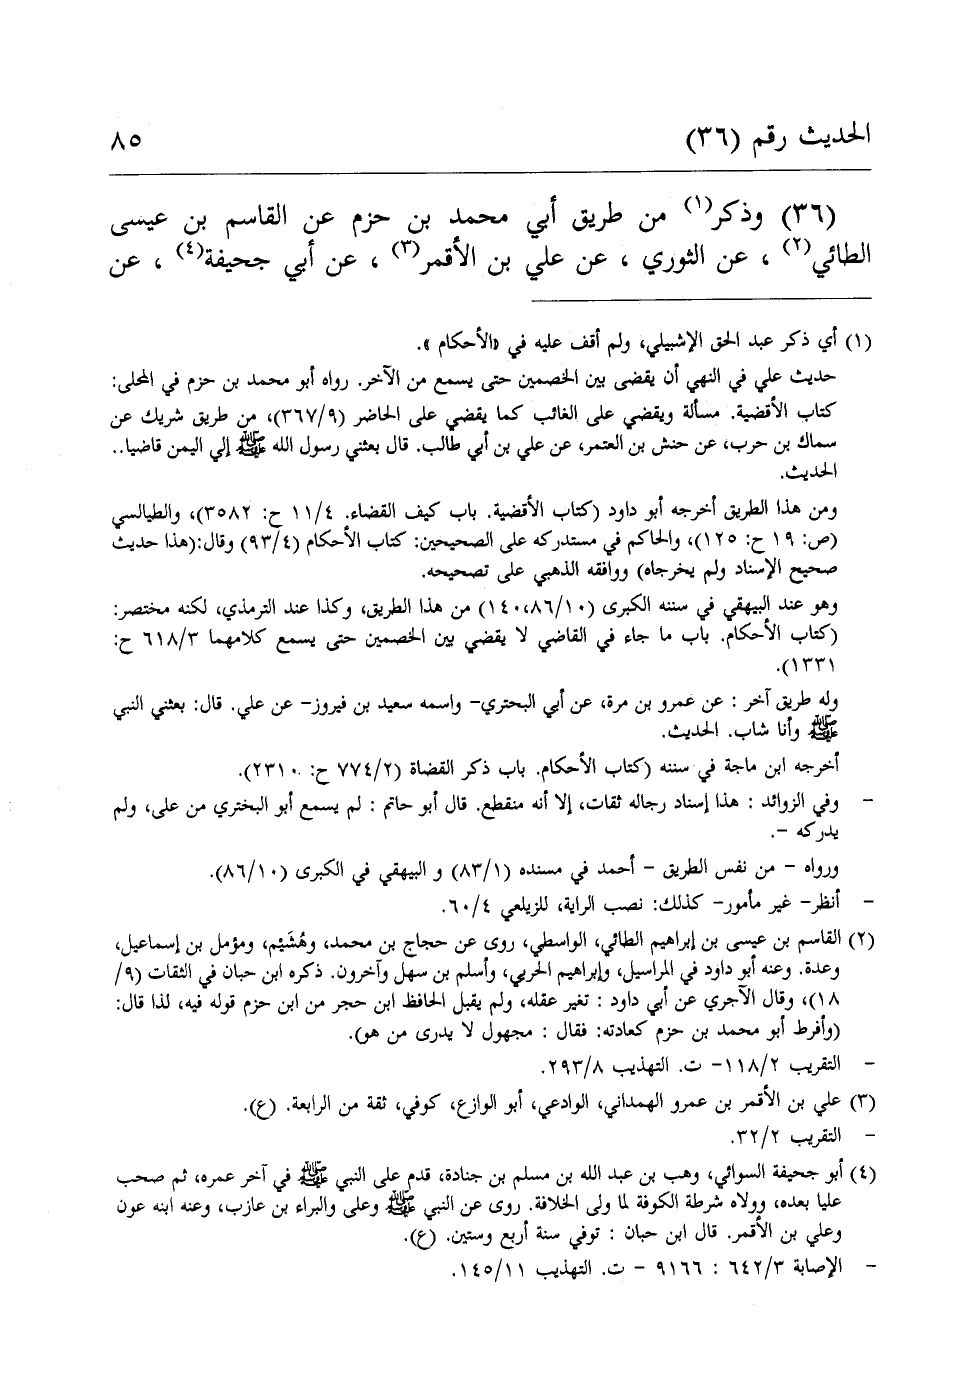 الحديث رقم (٣٦) ٨٥
(٣٦) وذكر(١) من طريق أبي محمد بن حزم عن القاسم بن عيسى
الطائي(٢) ، عن الثوري ، عن علي بن الأقمر(٣) ، عن أبي جحيفة(٤) ، عن
(١) أي ذكر عبد الحق الإشبيلي، ولم أقف عليه في «الأحكام ».
حديث علي في النهي أن يقضى بين الخصمين حتى يسمع من الآخر. رواه أبو محمد بن حزم في المحلى:
كتاب الأقضية. مسألة ويقضي على الغائب كما يقضي على الحاضر (٣٦٧/٩)، من طريق شريك عن
سماك بن حرب، عن حنش بن العتمر، عن علي بن أبي طالب. قال بعثني رسول الله ﷺ إلي اليمن قاضيا..
الحديث.
ومن هذا الطريق أخرجه أبو داود (كتاب الأقضية. باب كيف القضاء. ١١/٤ ح: ٣٥٨٢)، والطيالسي
(ص: ١٩ ح: ١٢٥)، والحاكم في مستدركه على الصحيحين: كتاب الأحكام (٩٣/٤) وقال:(هذا حديث
صحيح الإسناد ولم يخرجاه) ووافقه الذهبي على تصحيحه.
وهو عند البيهقي في سننه الكبرى (١٤٠،٨٦/١٠) من هذا الطريق، وكذا عند الترمذي، لكنه مختصر:
(كتاب الأحكام. باب ما جاء في القاضي لا يقضي بين الخصمين حتى يسمع كلامهما ٦١٨/٣ ح:
١٣٣١).
وله طريق آخر : عن عمرو بن مرة، عن أبي البحتري- واسمه سعيد بن فيروز- عن علي. قال: بعثني النبي
ﷺ وأنا شاب. الحديث.
أخرجه ابن ماجة في سننه (كتاب الأحكام. باب ذكر القضاة (٧٧٤/٢ ح: ٢٣١٠).
- وفي الزوائد : هذا إسناد رجاله ثقات، إلا أنه منقطع. قال أبو حاتم : لم يسمع أبو البختري من على، ولم
يدركه -.
ورواه - من نفس الطريق - أحمد في مسنده (٨٣/١) و البيهقي في الكبرى (٨٦/١٠).
- أنظر- غير مأمور- كذلك: نصب الراية، للزيلعي ٦٠/٤.
(٢) القاسم بن عيسى بن إبراهيم الطائي، الواسطي، روى عن حجاج بن محمد، وهُشَيْم، ومؤمل بن إسماعيل،
وعدة. وعنه أبو داود في المراسيل، وإبراهيم الحربي، وأسلم بن سهل وآخرون. ذكره ابن حبان في الثقات (٩/
١٨)، وقال الآجري عن أبي داود : تغير عقله، ولم يقبل الحافظ ابن حجر من ابن حزم قوله فيه، لذا قال:
(وأفرط أبو محمد بن حزم كعادته: فقال : مجهول لا يدرى من هو).
- التقريب ١١٨/٢- ت. التهذيب ٢٩٣/٨.
(٣) علي بن الأقمر بن عمرو الهمداني، الوادعي، أبو الوازع، كوفي، ثقة من الرابعة. (ع).
- التقريب ٣٢/٢.
(٤) أبو جحيفة السوائي، وهب بن عبد الله بن مسلم بن جنادة، قدم على النبي ﷺ في آخر عمره، ثم صحب
عليا بعده، وولاه شرطة الكوفة لما ولى الخلافة. روى عن النبي ﷺ وعلى والبراء بن عازب، وعنه ابنه عون
وعلي بن الأقمر. قال ابن حبان : توفي سنة أربع وستين. (ع).
- الإصابة ٦٤٢/٣ : ٩١٦٦ - ت. التهذيب ١٤٥/١١.